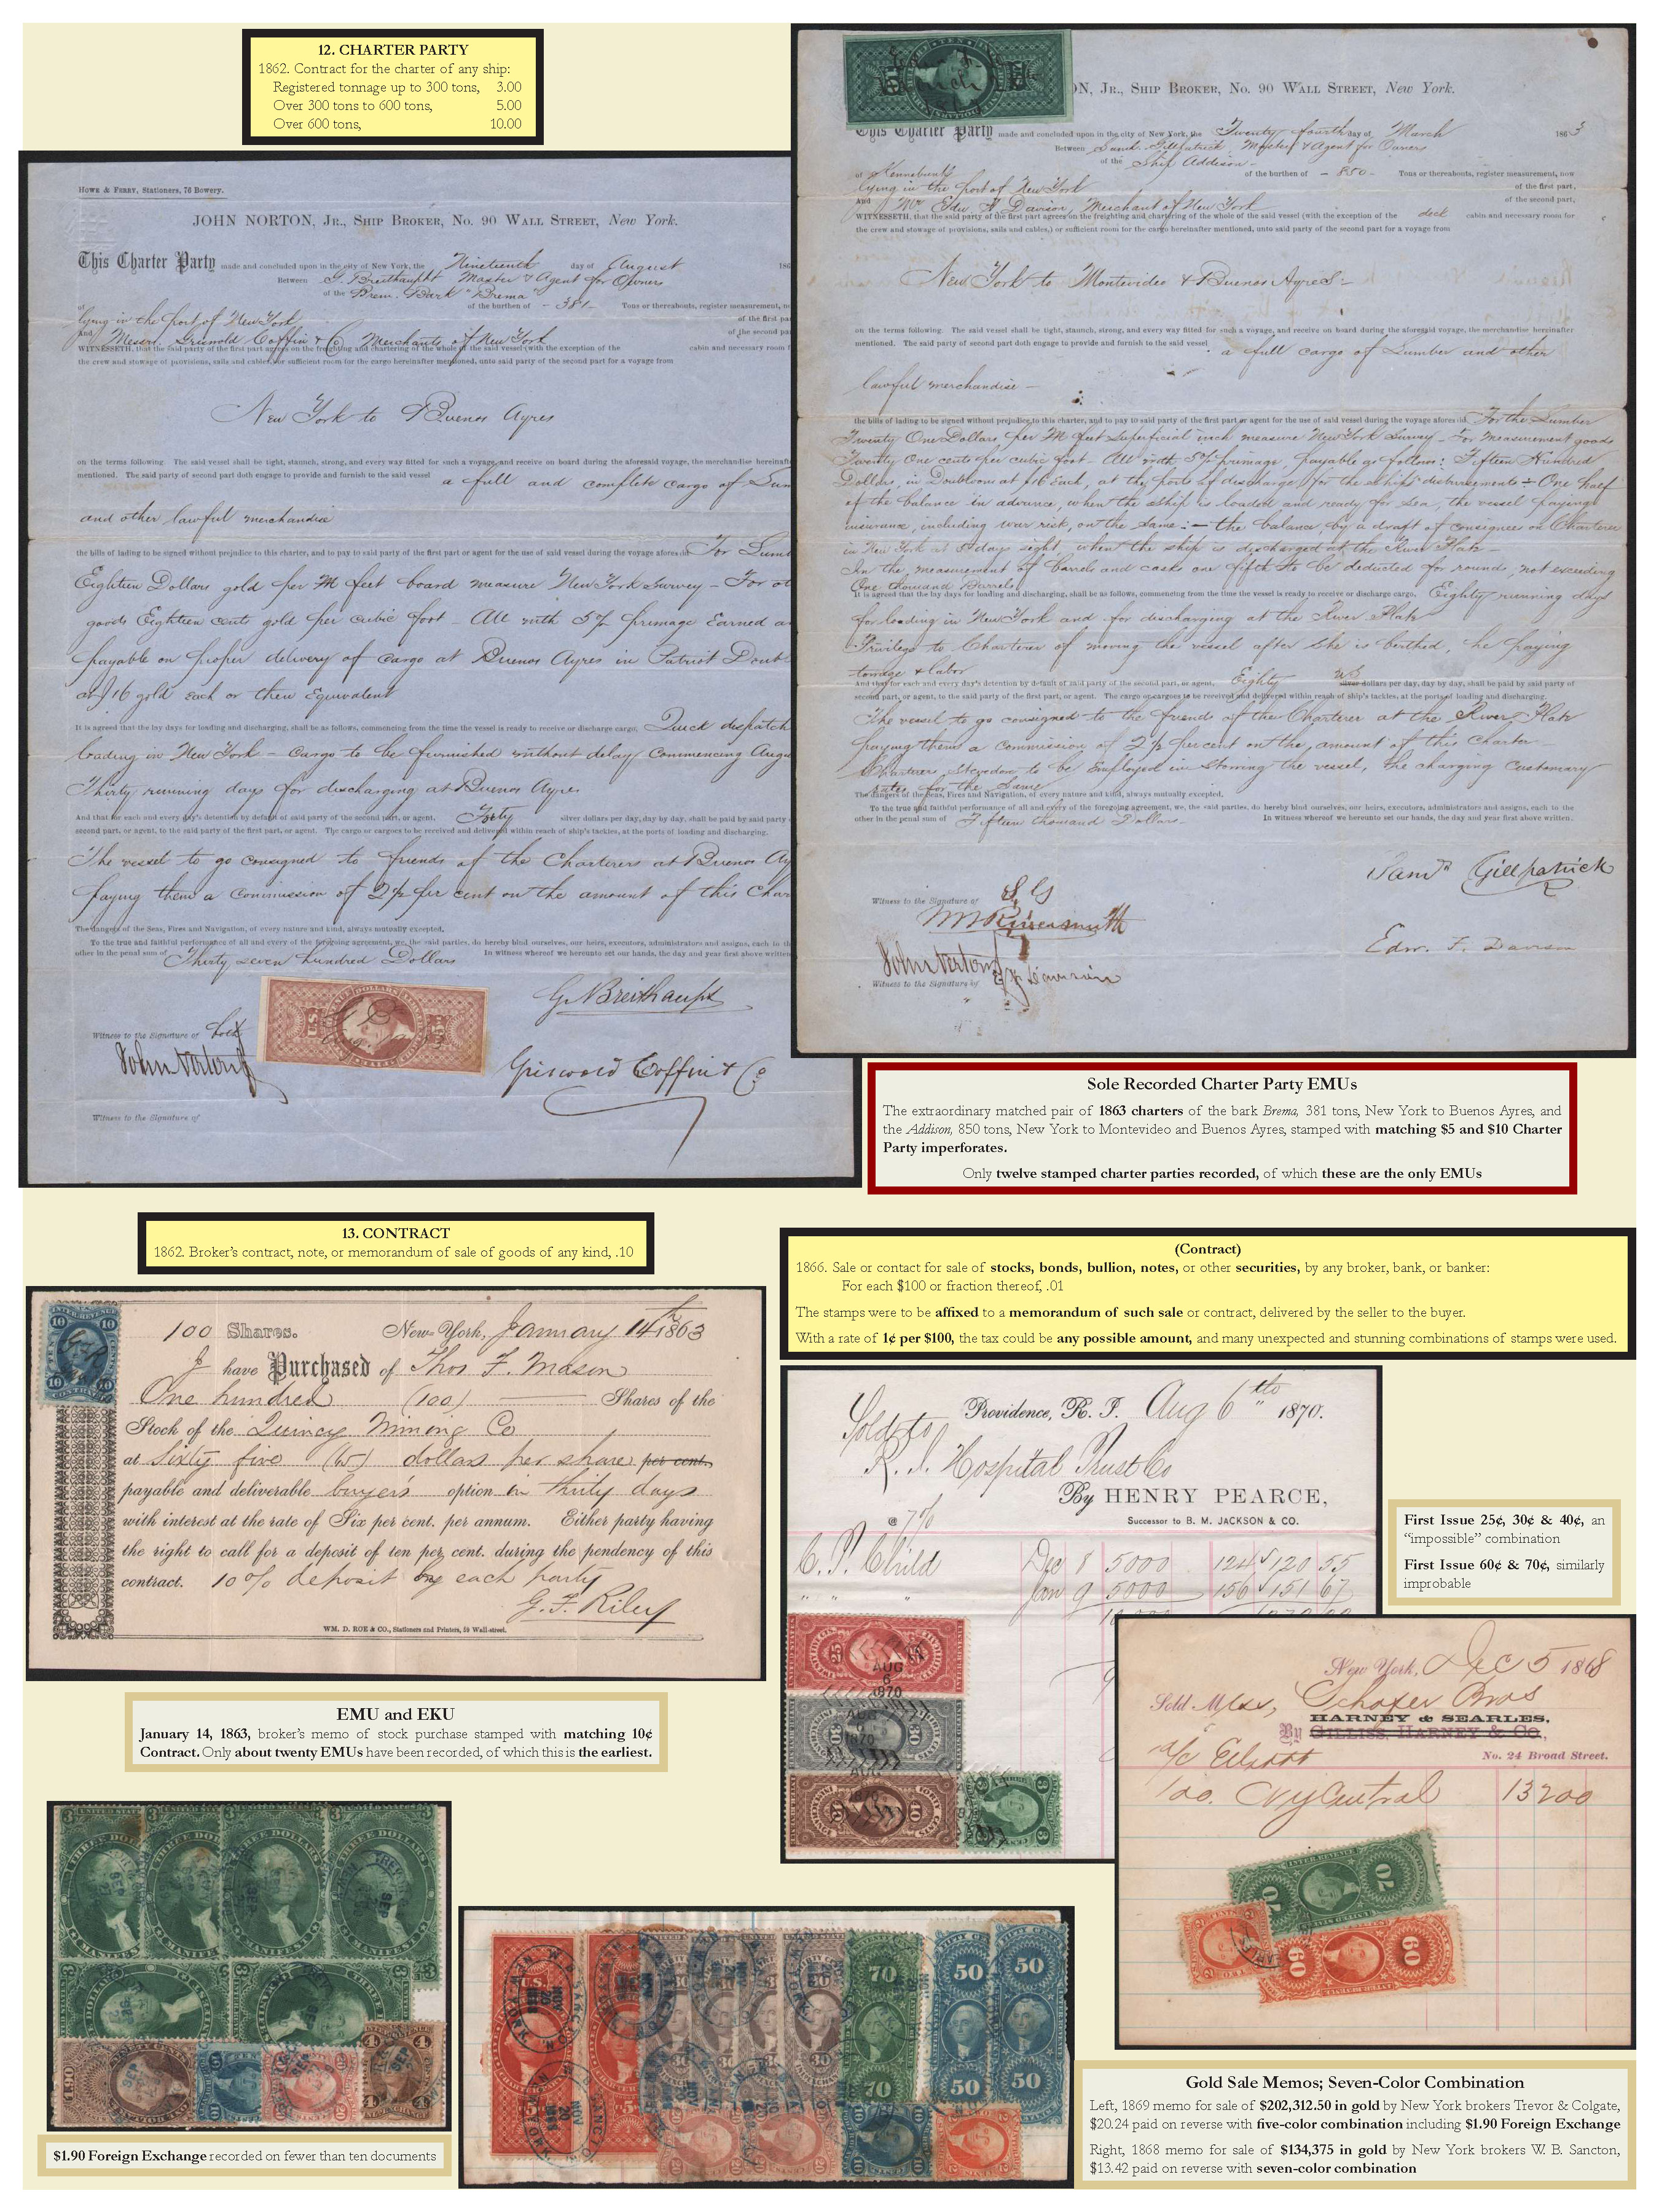 12. CHARTER PARTY
1862. Contract for the charter of any ship:
Registered tonnage up to 300 tons, 3.00
Over 300 tons to 600 tons, 5.00
Over 600 tons, 10.00
Howe & Ferry, Stationers, 76 Bowery.
JOHN NORTON, Jr., Ship Broker, No. 90 Wall Street, New York.
This Charter Party made and concluded upon in the city of New York, the Nineteenth day of August 186
Between G. Breithaupt Master & Agent for Owners
of the Brem. Bark "Brema"
of the burthen of - 381 - Tons or thereabouts, register measurement,
lying in the port of New York
And Messrs. Griswold Coffin & Co. Merchants of New York
WITNESSETH, that the said party of the first part agrees on the freighting and chartering of the whole of the said vessel (with the exception of the cabin and necessary room
the crew and stowage of provisions, sails and cables,) or sufficient room for the cargo hereinafter mentioned, unto said party of the second part for a voyage from
New York to Buenos Ayres
on the terms following. The said vessel shall be tight, staunch, strong, and every way fitted for such a voyage, and receive on board during the aforesaid voyage, the merchandise
mentioned. The said party of second part doth engage to provide and furnish to the said vessel a full and complete cargo of
and other lawful merchandise
the bills of lading to be signed without prejudice to this charter, and to pay to said party of the first part or agent for the use of said vessel during the voyage aforesaid For
Eighteen Dollars gold per M feet board measure New York Survey - For
goods Eighteen cents gold per cubic foot - All with 5% primage Earned
payable on proper delivery of cargo at Buenos Ayres in Patriot
at $16 gold each or their Equivalent
It is agreed that the lay days for loading and discharging, shall be as follows, commencing from the time the vessel is ready to receive or discharge cargo, Quick dispatch
loading in New York - Cargo to be furnished without delay Commencing
Thirty running days for discharging at Buenos Ayres
And that for each and every day's detention by default of said party of the second part, or agent, Forty silver dollars per day, day by day, shall be paid by said party
second part, or agent, to the said party of the first part, or agent. The cargo or cargoes to be received and delivered within reach of ship's tackles, at the ports of loading and discharging.
The vessel to go consigned to friends of the Charterers at Buenos
paying them a commission of 2½ per cent on the amount of this
The dangers of the Seas, Fires and Navigation, of every nature and kind, always mutually excepted.
To the true and faithful performance of all and every of the foregoing agreement, we, the said parties, do hereby bind ourselves, our heirs, executors, administrators and assigns, each to
other in the penal sum of Thirty seven hundred Dollars In witness whereof we hereunto set our hands, the day and year first above written
G. Breithaupt
Witness to the Signature of both
John Norton Jr
Griswold Coffin & Co
Witness to the Signature of
ON, Jr., Ship Broker, No. 90 Wall Street, New York.
This Charter Party made and concluded upon in the city of New York, the Twenty fourth day of March 1863
Between Saml. Gillpatrick, Master & Agent for Owners
of the Ship Addison -
of Kennebunk of the burthen of - 850 - Tons or thereabouts, register measurement, now
lying in the port of New York of the first part,
And Mr Edw F Davison, Merchant of New York of the second part,
WITNESSETH, that the said party of the first part agrees on the freighting and chartering of the whole of the said vessel (with the exception of the deck cabin and necessary room for
the crew and stowage of provisions, sails and cables,) or sufficient room for the cargo hereinafter mentioned, unto said party of the second part for a voyage from
New York to Montevideo & Buenos Ayres -
on the terms following. The said vessel shall be tight, staunch, strong, and every way fitted for such a voyage, and receive on board during the aforesaid voyage, the merchandise hereinafter
mentioned. The said party of second part doth engage to provide and furnish to the said vessel a full cargo of Lumber and other
lawful merchandise -
the bills of lading to be signed without prejudice to this charter, and to pay to said party of the first part or agent for the use of said vessel during the voyage aforesaid For the Lumber
Twenty One Dollars per M feet Superficial inch measure New York Survey - For measurement goods
Twenty One cents per cubic foot - All with 5% primage, payable as follows: Fifteen Hundred
Dollars, in Doubloons at $16 Each, at the ports of discharge for the ships disbursements - One half
of the balance in advance, when the ship is loaded and ready for sea, the vessel paying
insurance, including war risk, on the same: - the balance, by a draft of consignees on Charterer
in New York at 5 days sight, when the ship is discharged at the River Plate -
In the measurement of barrels and casks one fifth to be deducted for rounds, not exceeding
One thousand Barrels
It is agreed that the lay days for loading and discharging, shall be as follows, commencing from the time the vessel is ready to receive or discharge cargo, Eighty running days
for loading in New York and for discharging at the River Plate
Privilege to Charterer of moving the vessel after she is berthed, he paying
towage & labor
And that for each and every day's detention by default of said party of the second part, or agent, Eighty US silver dollars per day, day by day, shall be paid by said party of
second part, or agent, to the said party of the first part, or agent. The cargo or cargoes to be received and delivered within reach of ship's tackles, at the ports of loading and discharging.
The vessel to go consigned to the friends of the Charterer at the River Plate
paying them a commission of 2½ per cent on the amount of this Charter -
Charterers Stevedore to be Employed in Stowing the vessel, he charging customary
rates for the same
The dangers of the Seas, Fires and Navigation, of every nature and kind, always mutually excepted.
To the true and faithful performance of all and every of the foregoing agreement, we, the said parties, do hereby bind ourselves, our heirs, executors, administrators and assigns, each to the
other in the penal sum of Fifteen thousand Dollars - In witness whereof we hereunto set our hands, the day and year first above written.
Saml Gillpatrick
Witness to the Signature of S. G
Edw. F. Davison
John Norton Jr
E F Davison
Witness to the Signature of
Sole Recorded Charter Party EMUs
The extraordinary matched pair of 1863 charters of the bark Brema, 381 tons, New York to Buenos Ayres, and
the Addison, 850 tons, New York to Montevideo and Buenos Ayres, stamped with matching $5 and $10 Charter
Party imperforates.
Only twelve stamped charter parties recorded, of which these are the only EMUs
13. CONTRACT
1862. Broker's contract, note, or memorandum of sale of goods of any kind, .10
100 Shares. New-York, January 14th 1863
I have Purchased of Thos F. Mason
One hundred (100) Shares of the
Stock of the Quincy Mining Co
at Sixty five (65) dollars per share per cent.
payable and deliverable buyer's option in thirty days
with interest at the rate of Six per cent. per annum. Either party having
the right to call for a deposit of ten per cent. during the pendency of this
contract. 10% deposit by each party
G. F. Riley
WM. D. ROE & CO., Stationers and Printers, 59 Wall-street.
EMU and EKU
January 14, 1863, broker's memo of stock purchase stamped with matching 10¢
Contract. Only about twenty EMUs have been recorded, of which this is the earliest.
(Contract)
1866. Sale or contact for sale of stocks, bonds, bullion, notes, or other securities, by any broker, bank, or banker:
For each $100 or fraction thereof, .01
The stamps were to be affixed to a memorandum of such sale or contract, delivered by the seller to the buyer.
With a rate of 1¢ per $100, the tax could be any possible amount, and many unexpected and stunning combinations of stamps were used.
Providence, R. I. Aug 6th 1870.
Sold to
R. I. Hospital Trust Co
By HENRY PEARCE,
Successor to B. M. JACKSON & CO.
@ 7%
C. P. Child Dec 8 5000 124 120 55
" " " Jan 9 5000 156 151 67
AUG 6 1870
First Issue 25¢, 30¢ & 40¢, an
"impossible" combination
First Issue 60¢ & 70¢, similarly
improbable
New York, Dec 5 1868
Sold Mess, Schafer Bros
HARNEY & SEARLES,
By GILLISS, HARNEY & CO.,
No. 24 Broad Street.
a/c
100. NY Central 13200
70
60
$1.90 Foreign Exchange recorded on fewer than ten documents
U.S.
70 50 50
30 30 30 30
70 50 50
Gold Sale Memos; Seven-Color Combination
Left, 1869 memo for sale of $202,312.50 in gold by New York brokers Trevor & Colgate,
$20.24 paid on reverse with five-color combination including $1.90 Foreign Exchange
Right, 1868 memo for sale of $134,375 in gold by New York brokers W. B. Sancton,
$13.42 paid on reverse with seven-color combination